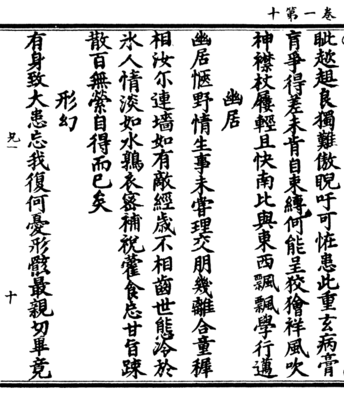 卷一第十
眦趑趄良獨難傲睨吁可恠患此重玄病膏
肓爭得差未肯自束縛何能呈狡獪祥風吹
神襟杖屨輕且快南北與東西飄飄學行邁
幽居
幽居愜野情生事未嘗理交朋幾離合童穉
相汝尔連墻如有敵經歳不相齒世態冷於
氷人情淡如水鶉衣容補裞藿食忘甘旨踈
散百無縈自得而已矣
形幻
有身致大患忘我復何憂形骸最親切畢竟
十